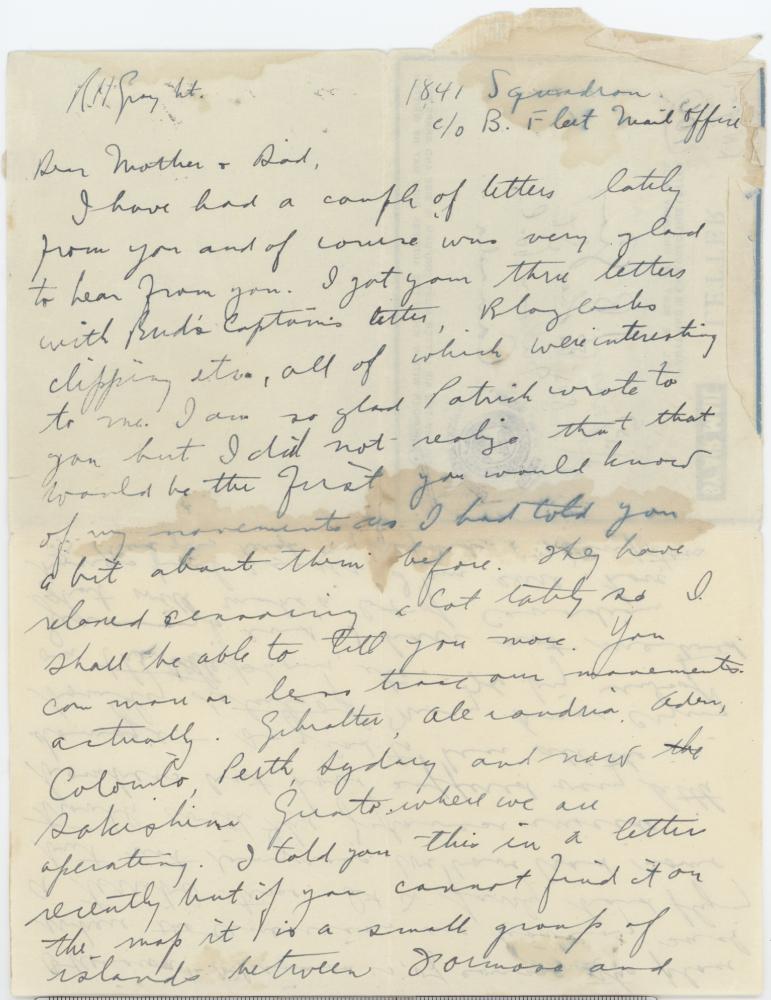 R.H. Gray Lt.
1841 Squadron.
c/o B. Fleet Mail Office
Dear Mother & Dad,
I have had a couple of letters lately
from you and of course was very glad
to hear from you. I got your three letters
with Bud's Captain's letter, Blaylocks
clipping etc., all of which were interesting
to me. I am so glad Patrick wrote to
you but I did not realize that that
would be the first you would know
of my movements as I had told you
a bit about them before. They have
relaxed censoring a lot lately so I
shall be able to tell you more. You
can more or less trace our movements
actually. Gibralter, Alexandria, Aden,
Colombo, Perth, Sydney and now the
Sakishima Gunto where we are
operating. I told you this in a letter
recently but if you cannot find it on
the map it is a small group of
islands between Formosa and